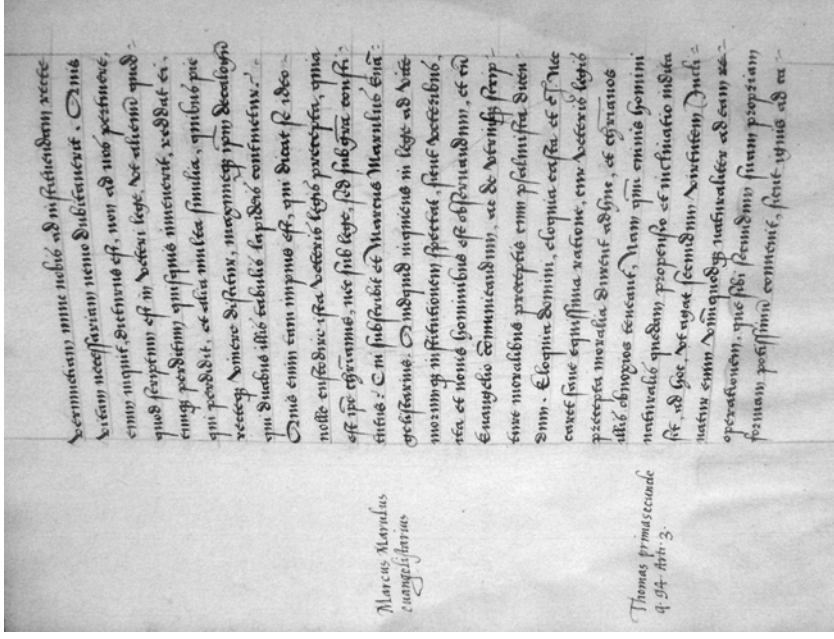 verumetiam nunc nobis ad instituendam recte
vitam necessariam nemo dubitauerit. Quis
enim inquit, dicturus est, non ad nos pertinere,
quod scriptum est in veteri lege, vt alienũ quod=
cunqꝫ perditum quisquis inuenerit, reddat ei,
qui perdidit, et alia multa similia, quibus pie
recteqꝫ viuere discitur, maximeqꝫ ipm̃ decalogũ
qui duabus illis tabulis lapideis continetur?
Quis enim tam impius est, qui dicat se ideo
nolle custodire ista veteris legis precepta, quia
est ip̃e chr̃ianus, nec sub lege, sed sub gr̃a consti=
tutus? Cui subscribit et Marcus Marulus Euã=
gelistarius. Quidquid inquiens in lege ad vite
morumqꝫ institutionem spectat, sicut veteribus,
ita et nouis hominibus est obseruandum, et cũ
Euangelio cõmunicandum, ac de vtriusqꝫ scrip=
ture moralibus preceptis cum psalmista dicen
dum. Eloquia domini, eloquia casta et cͭ. Nec
caret sane equissima ratione, cur veteris legis
precepta moralia durent adhuc, et chr̃ianos
illis obnoxios teneant. Nam qm̃ omnis homini
naturalis quedam propensio et inclinatio indita
sit, ad hoc, vt agat secundum virtutem (Incli=
natur enim vnumquodqꝫ naturaliter ad eam
operationem, que sibi secundum suam propriam
formam potissimũ conuenit, sicut ignis ad ca=
Marcus Marulus
euangelistarius
Thomas prima secunde
q. 94. Arti. 3.